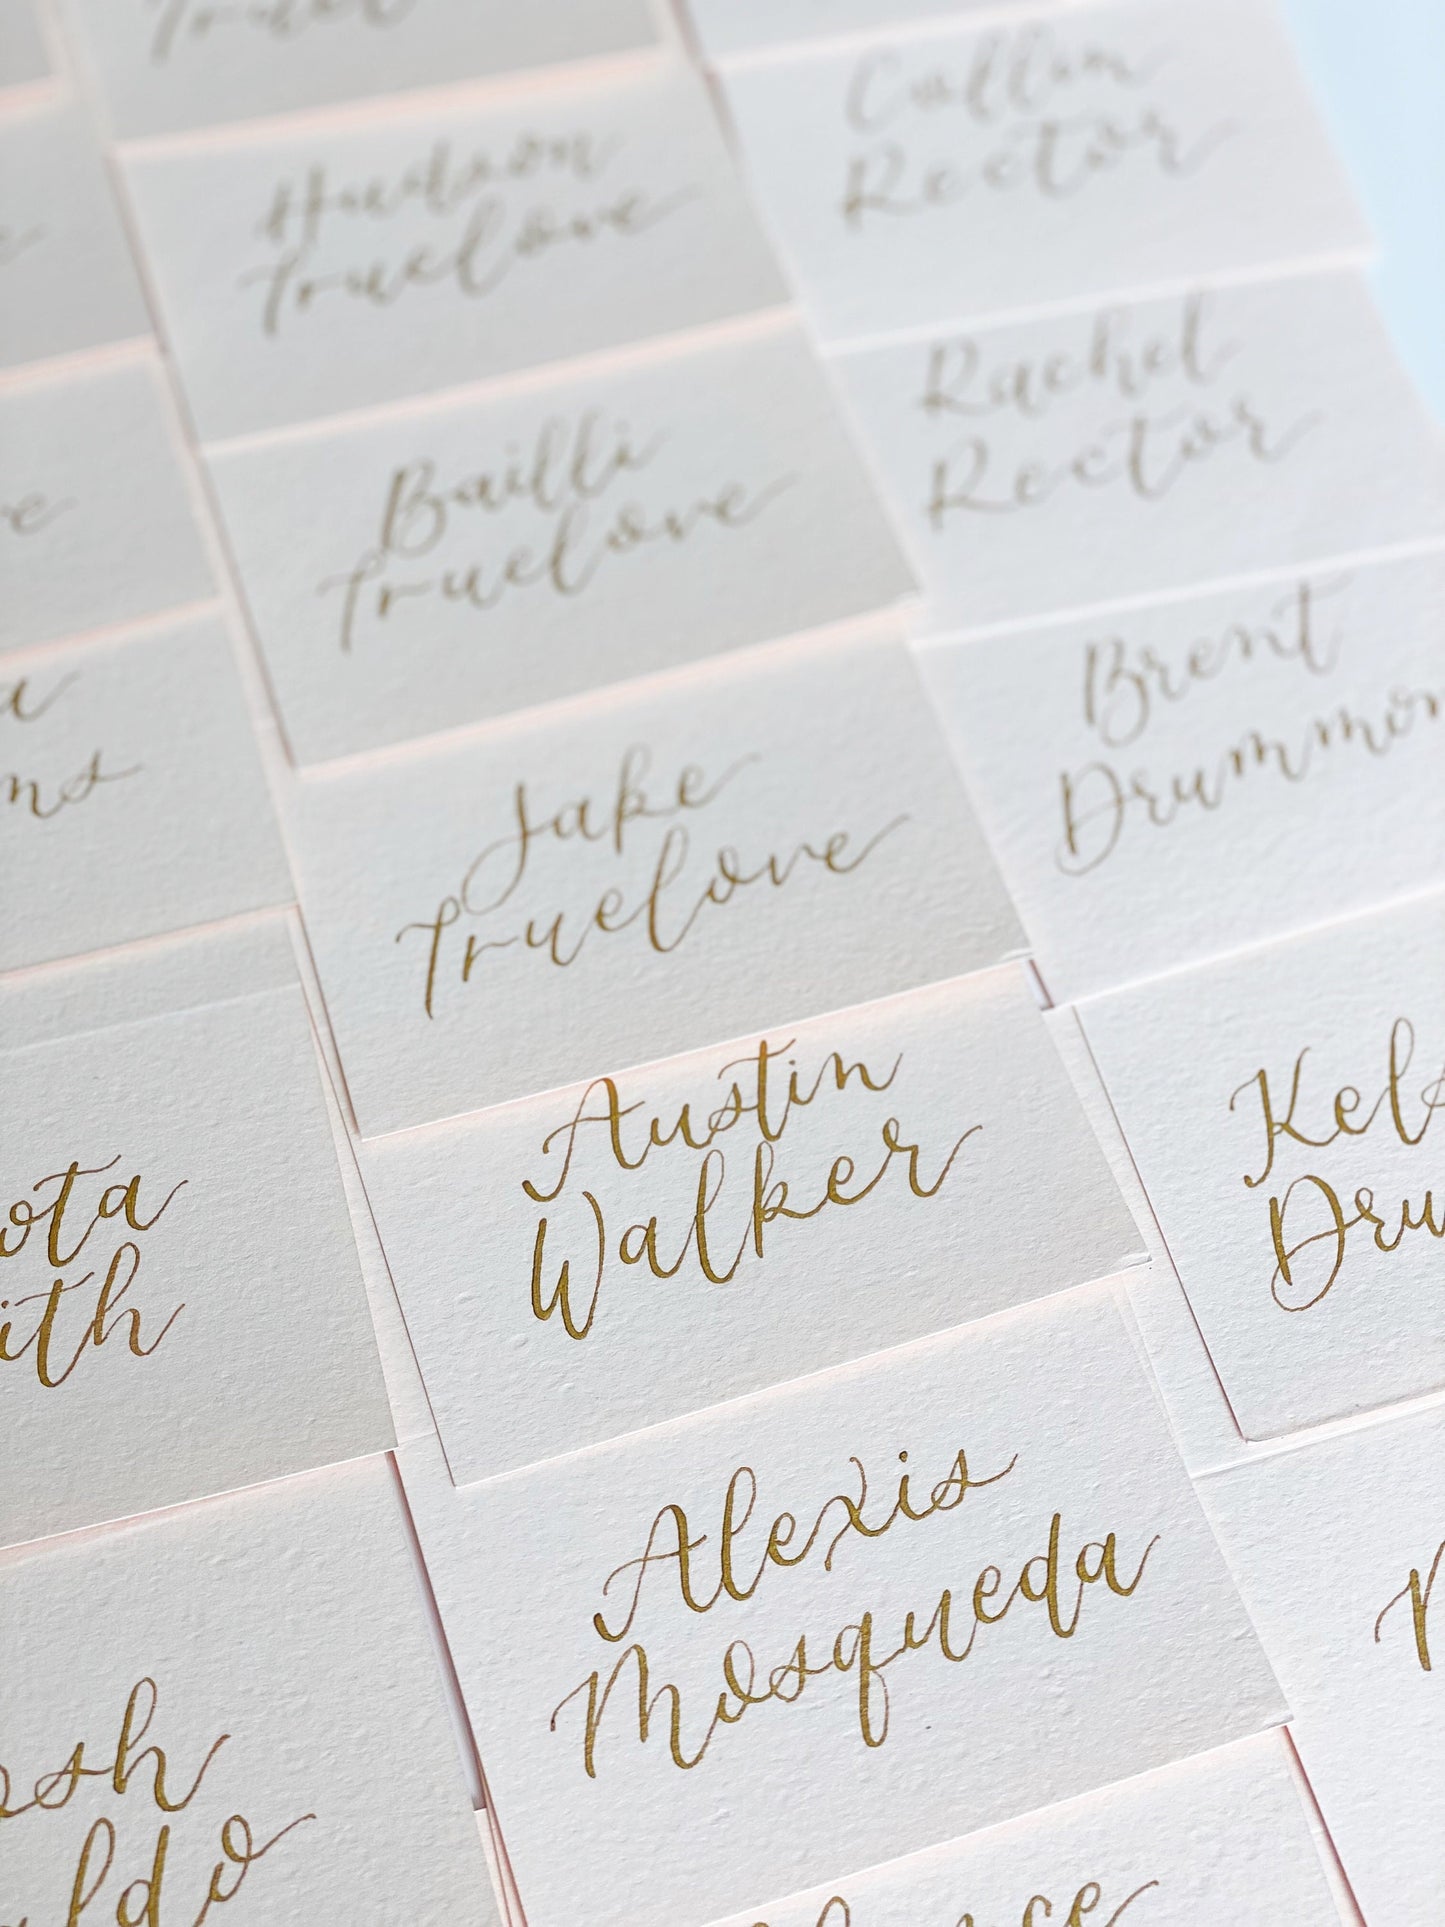 Hudson
Truelove
Bailli
Truelove
Jake
Truelove
Austin
Walker
Alexis
Mosqueda
Rector
Rachel
Rector
Brent
Drummon
Kels
Dru
ota
ith
osh
aldo
ns